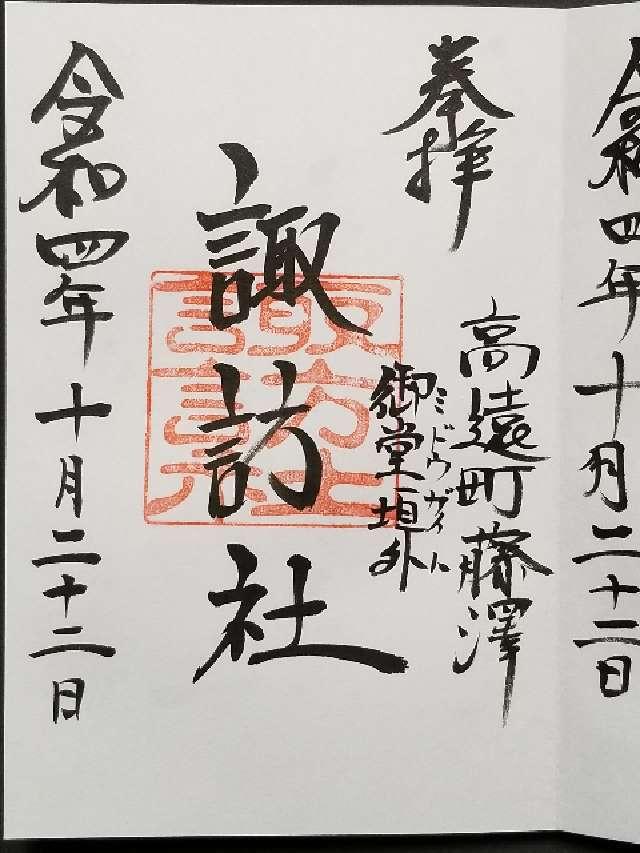 令和四年十月二十二日
奉拝
高遠町藤澤
ミドウガイト
御堂垣外
諏訪社
令和四年十月二十二日